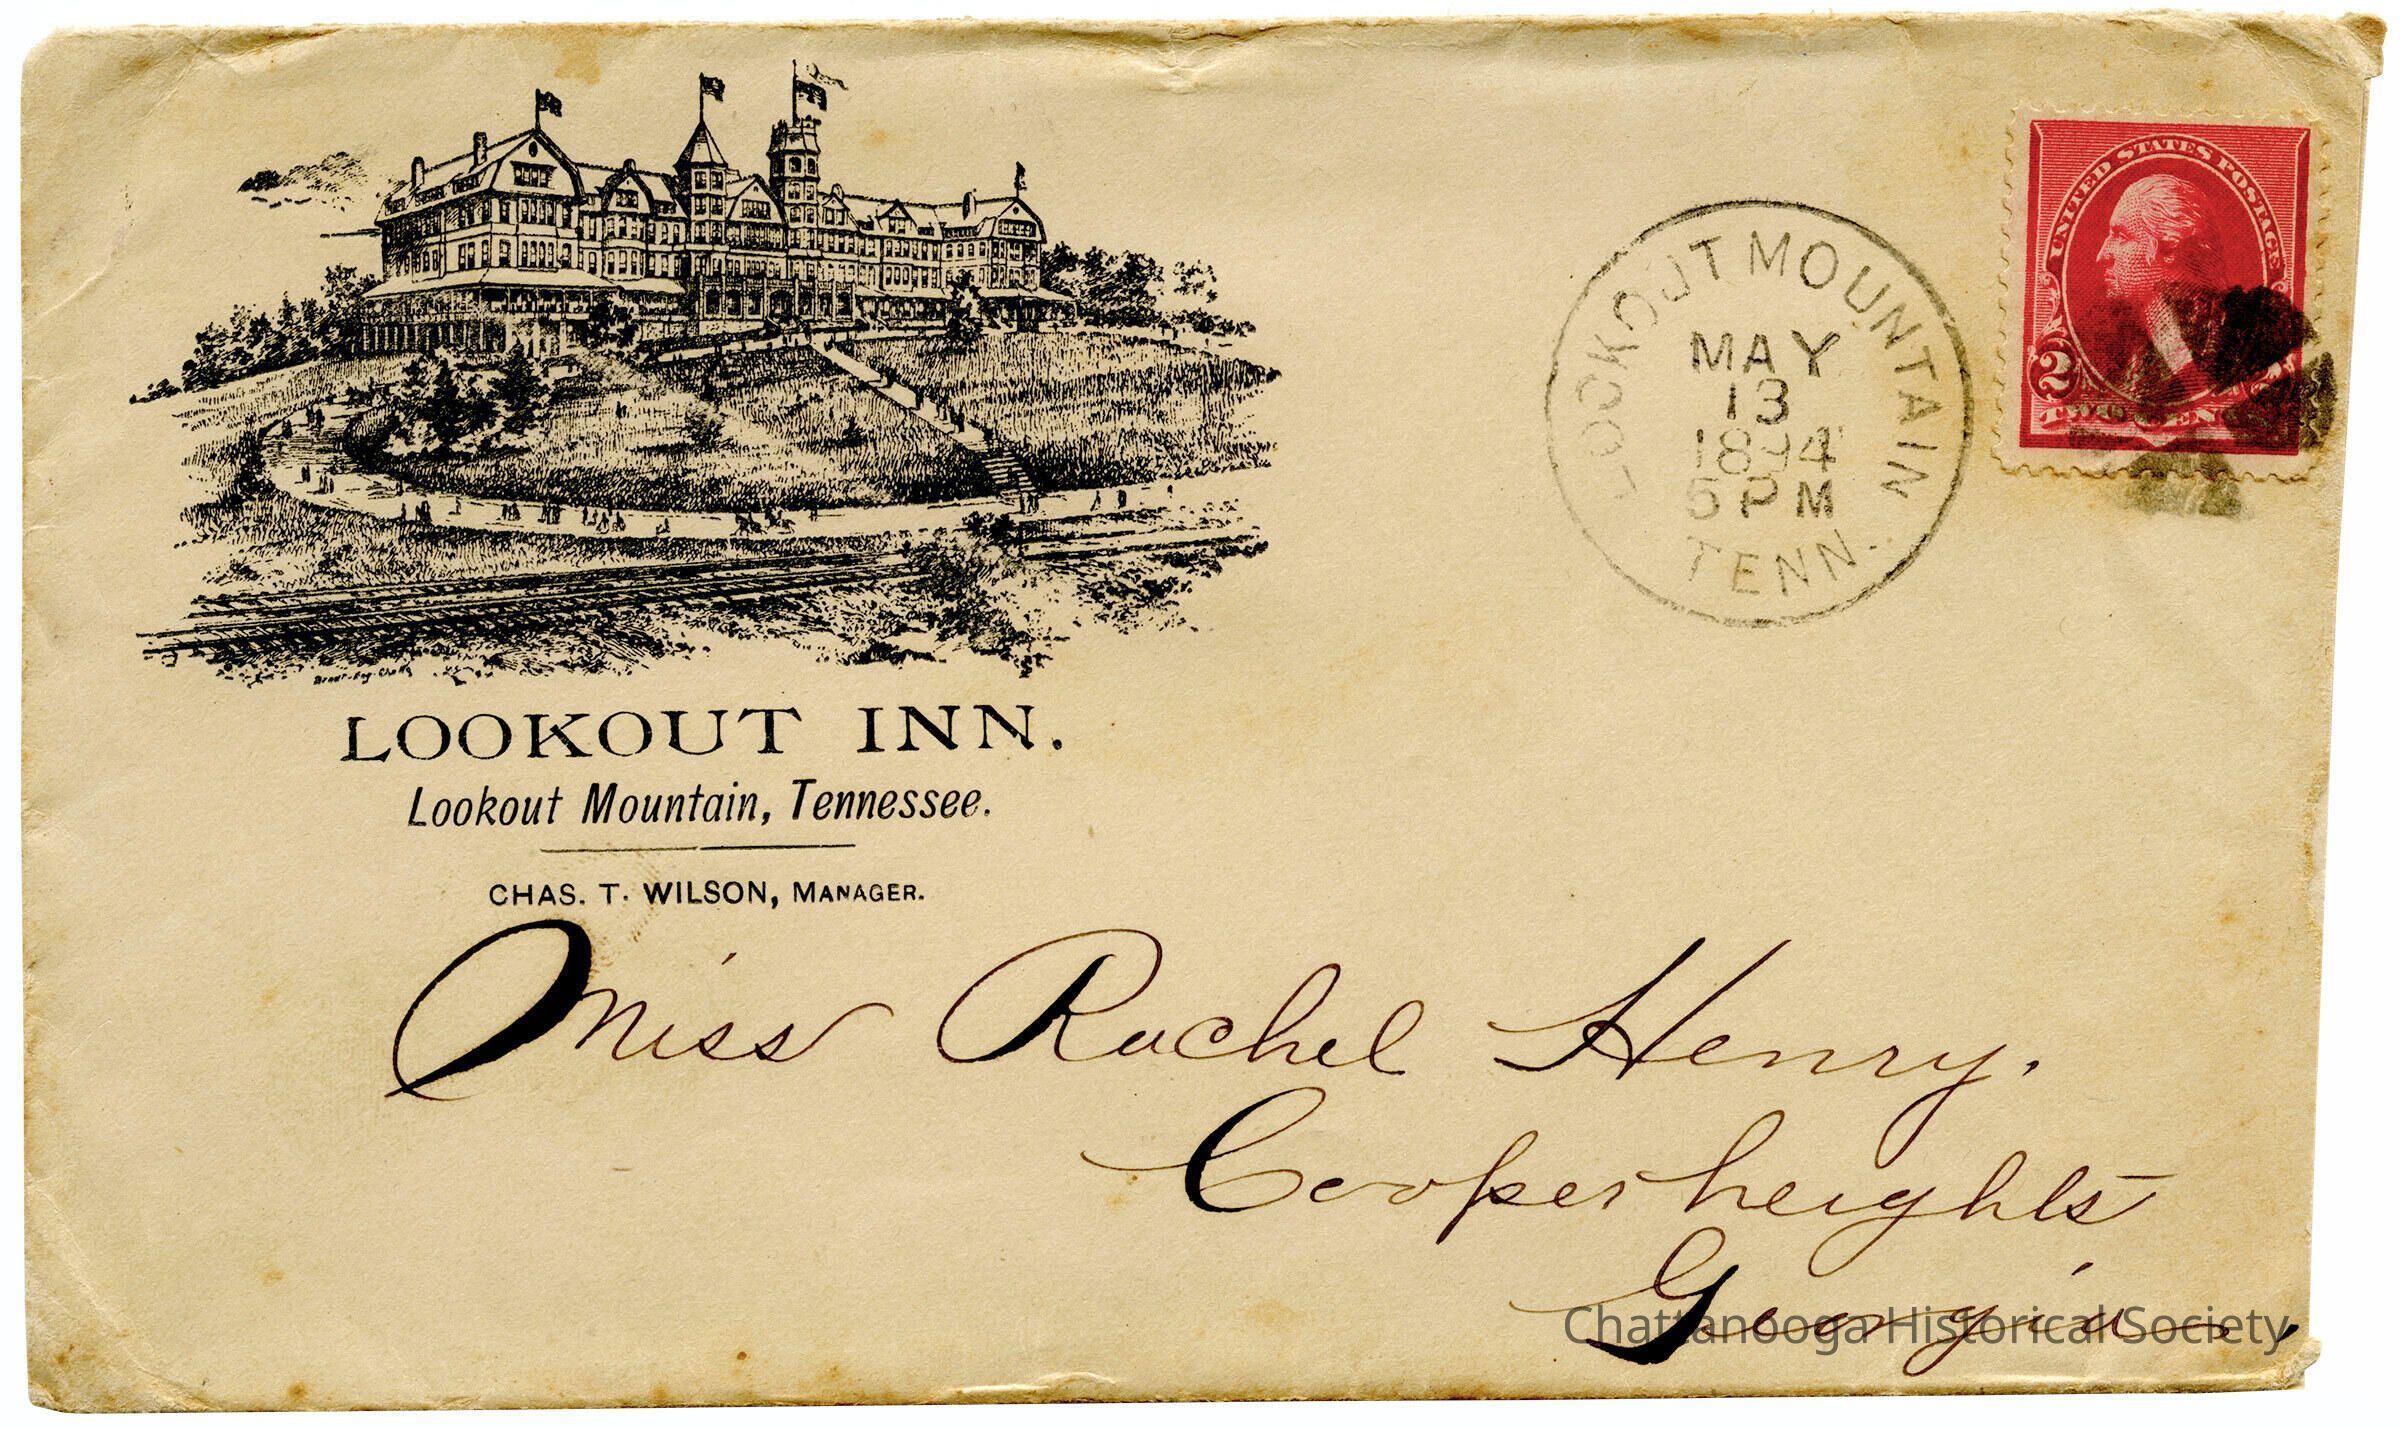 LOOKOUT INN.
Lookout Mountain, Tennessee.
CHAS. T. WILSON, MANAGER.
LOOKOUT MOUNTAIN
MAY
13
1894
5 PM
TENN.
UNITED STATES POSTAGE
2
TWO CENTS
Miss Rachel Henry.
Cooper heights
Georgia,
Chattanooga Historical Society